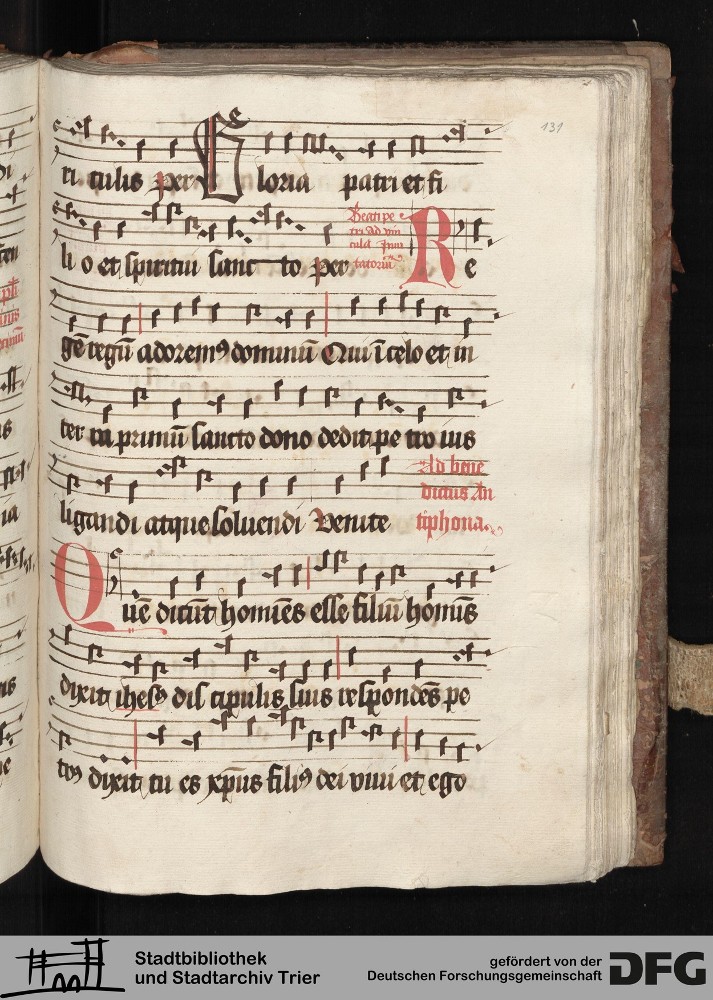 131
ri culis per Gloria patri et fi
li o et spiritui sanc to per
Beati pe
tri ad vin
cula Inui
tatoriũ
Re
gẽ regũ adoremꝯ dominũ Qui ĩ celo et in
ter ra primũ sancto dono dedit pe tro ius
ligandi atque soluendi Venite
Ad bene
dictus An
tiphona
Quẽ dicũt homiẽs esse filiũ homĩs
dixit ihesꝯ dis cipulis suis respondẽs pe
trꝯ dixit tu es xp̃us filiꝯ dei viui et ego
Stadtbibliothek
und Stadtarchiv Trier
gefördert von der
Deutschen Forschungsgemeinschaft
DFG